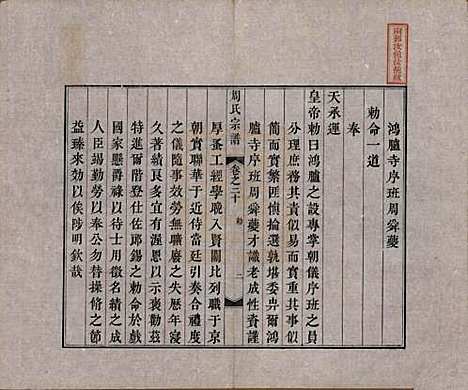 鴻臚寺序班周舜夔
勅命一道
奉
天承運
皇帝勅曰鴻臚之設專掌朝儀序班之
分理庶務其責似易而實重其事似
簡而實繁匪慎掄選孰堪委畀爾鴻
臚寺序班周舜夔才識老成性資謹
周氏宗譜
卷之三十
一
厚蚤工經學晚入賢關比列職于京
朝實聯華于近侍當廷引奏合禮度
之儀隨事效勞無職廢之失歷年寖
久著績良多宜有渥恩以示褒勸茲
特進爾階登仕佐郎錫之勅命於戲
國家懸爵祿以待士用徵名績之成
人臣竭勤勞以奉公勿替操修之志
益臻來効以俟陟明欽哉